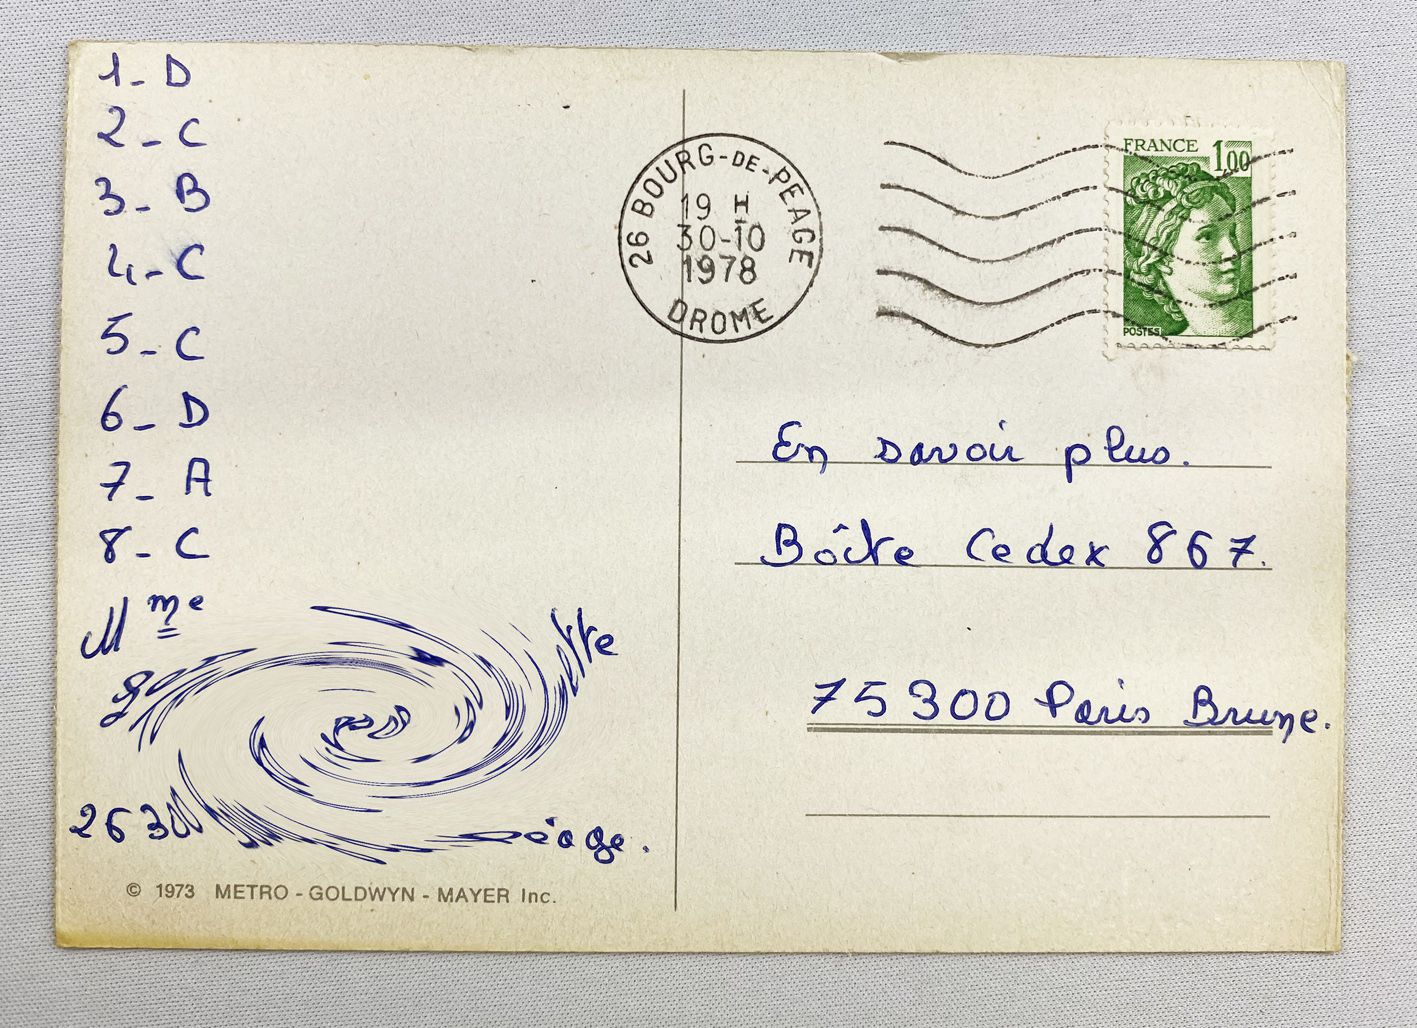 1_ D
2_ C
3_ B
4_ C
5_ C
6_ D
7_ A
8_ C
Mme
26300
© 1973 METRO - GOLDWYN - MAYER Inc.
26 BOURG-DE-PEAGE
19 H
30-10
1978
DROME
FRANCE 1,00
POSTES
En savoir plus.
Boîte Cedex 867.
75300 Paris Brune.